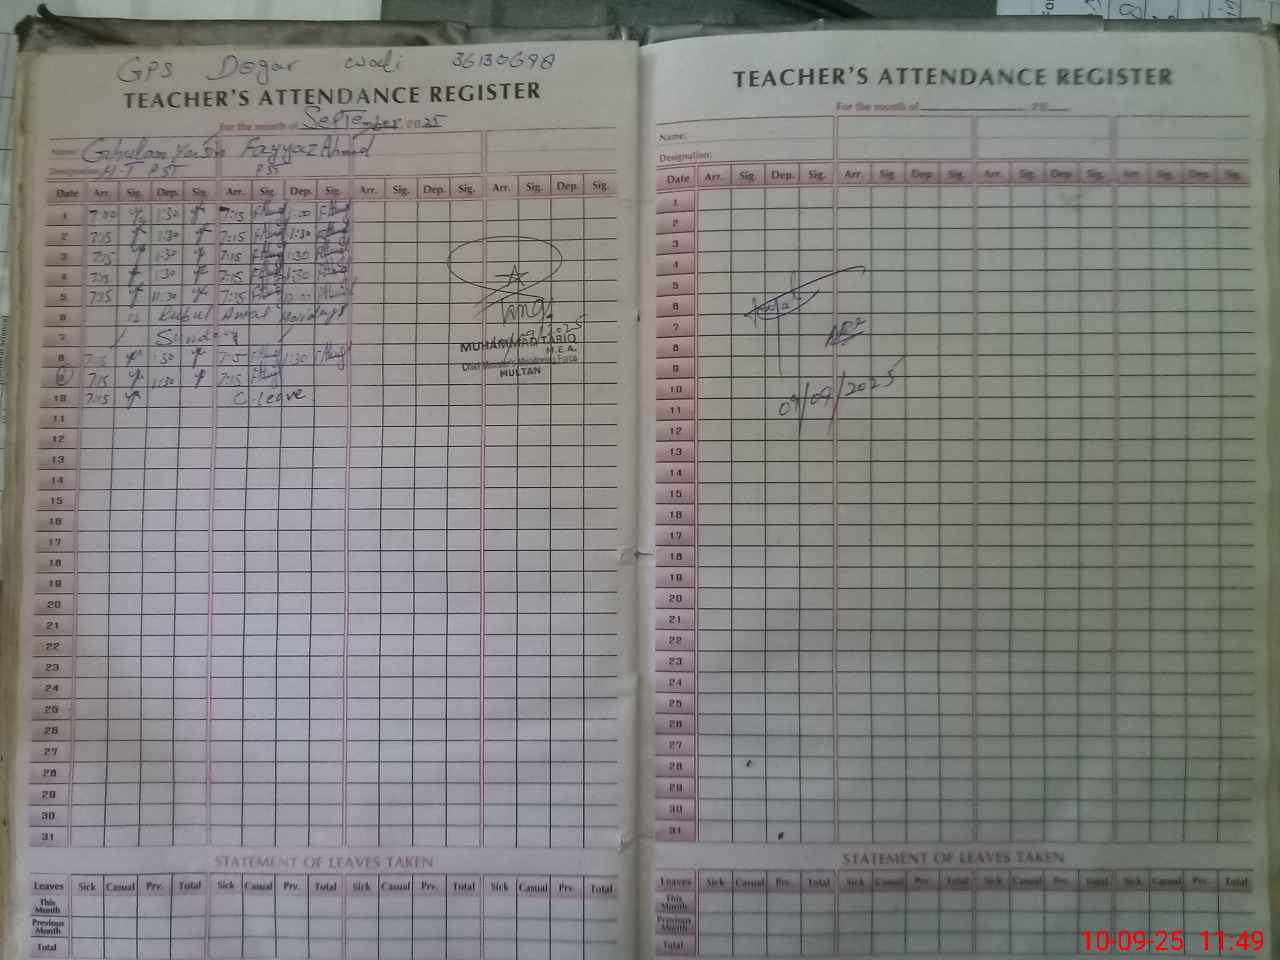 GPS Dogar wali 36130698
TEACHER'S ATTENDANCE REGISTER
For the month of September 2025
Name: Ghulam Yasin Fayyaz Ahmad
Designation: H-T PST PST
Date Arr. Sig. Dep. Sig. Arr. Sig. Dep. Sig. Arr. Sig. Dep. Sig. Arr. Sig. Dep. Sig.
1 7:00 1:30 7:15 1:00
2 7:15 1:30 7:15 1:30
3 7:15 1:30 7:15 1:30
4 7:15 1:30 7:15 1:30
5 7:15 11:30 7:15 12:00
6 12 Rubul Awal Holidays
7 Sunday
8 7:15 1:30 7:15 1:30
9 7:15 1:30 7:15
10 7:15 C-leave
11
12
13
14
15
16
17
18
19
20
21
22
23
24
25
26
27
28
29
30
31
Tariq
/09/2025
MUHAMMAD TARIQ
M.E.A.
Chief Minister's Monitoring Force
MULTAN
STATEMENT OF LEAVES TAKEN
Leaves Sick Casual Prv. Total Sick Casual Prv. Total Sick Casual Prv. Total Sick Casual Prv. Total
This Month
Previous Month
Total
TEACHER'S ATTENDANCE REGISTER
For the month of 20
Name:
Designation:
Date Arr. Sig. Dep. Sig. Arr. Sig. Dep. Sig. Arr. Sig. Dep. Sig. Arr. Sig. Dep. Sig.
1
2
3
4
5
6
7
8
9
10
11
12
13
14
15
16
17
18
19
20
21
22
23
24
25
26
27
28
29
30
31
09/09/2025
STATEMENT OF LEAVES TAKEN
Leaves Sick Casual Prv. Total Sick Casual Prv. Total Sick Casual Prv. Total Sick Casual Prv. Total
This Month
Previous Month
Total
10-09-25 11:49